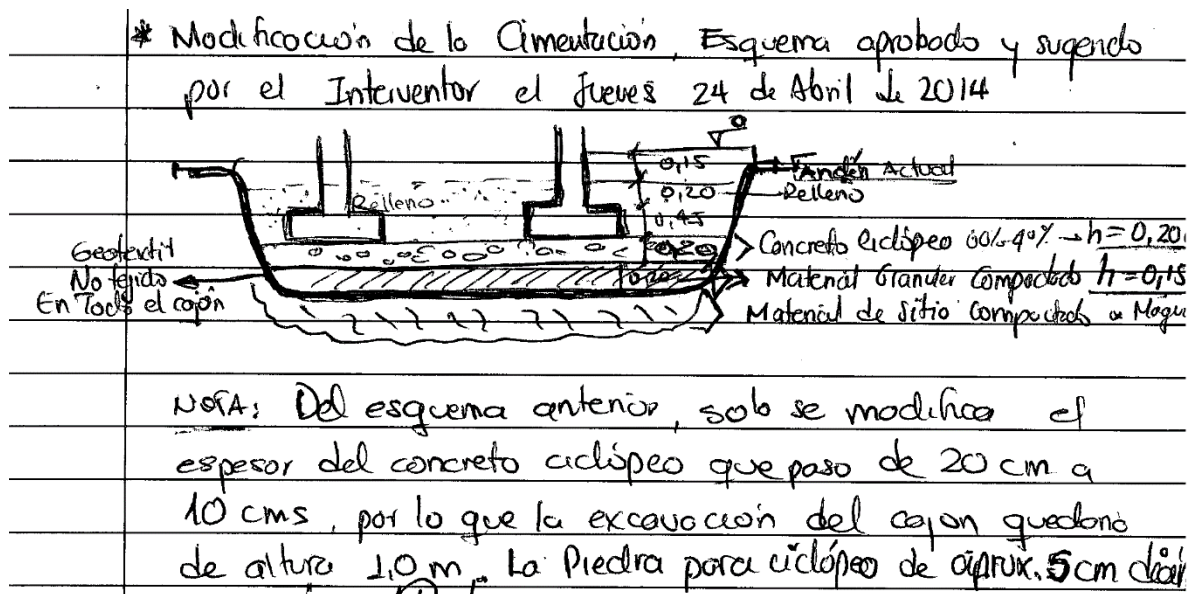 * Modificación de la Cimentación, Esquema aprobado y sugerido
por el Interventor el Jueves 24 de Abril de 2014
0,15
Andén Actual
0,20 Relleno
Relleno
0,45
0,20 Concreto Ciclópeo 60%-40% → h=0,20
Geotextil
No tejido
En Todo el cajón
Material Granular Compactado h=0,15
Material de Sitio Compactado a
NOTA: Del esquema anterior, solo se modifica el
espesor del concreto ciclópeo que paso de 20 cm a
10 cms, por lo que la excavación del cajon quedaria
de altura 1,0 m. La Piedra para ciclópeo de aprox. 5 cm